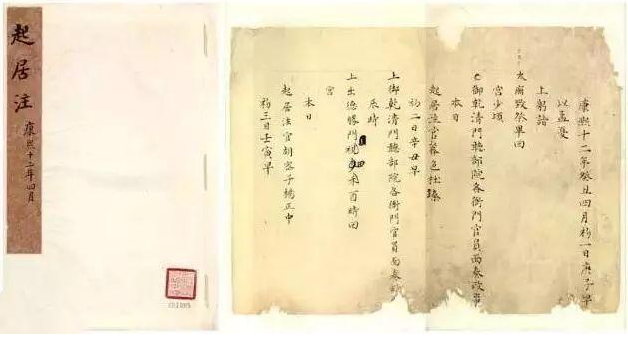 起居注
康熙十二年四月
康熙十二年癸丑四月初一日庚子早
以孟夏
上躬詣
太廟致祭畢回
宮少頃
上御乾清門聽部院各衙門官員面奏政事
本日
起居注官喀色杜臻
初二日辛丑早
上御乾清門聽部院各衙門官員面奏政
辰時
上出德勝門觀禾酉時回
宮
本日
起居注官胡密子楊正中
初三日壬寅早